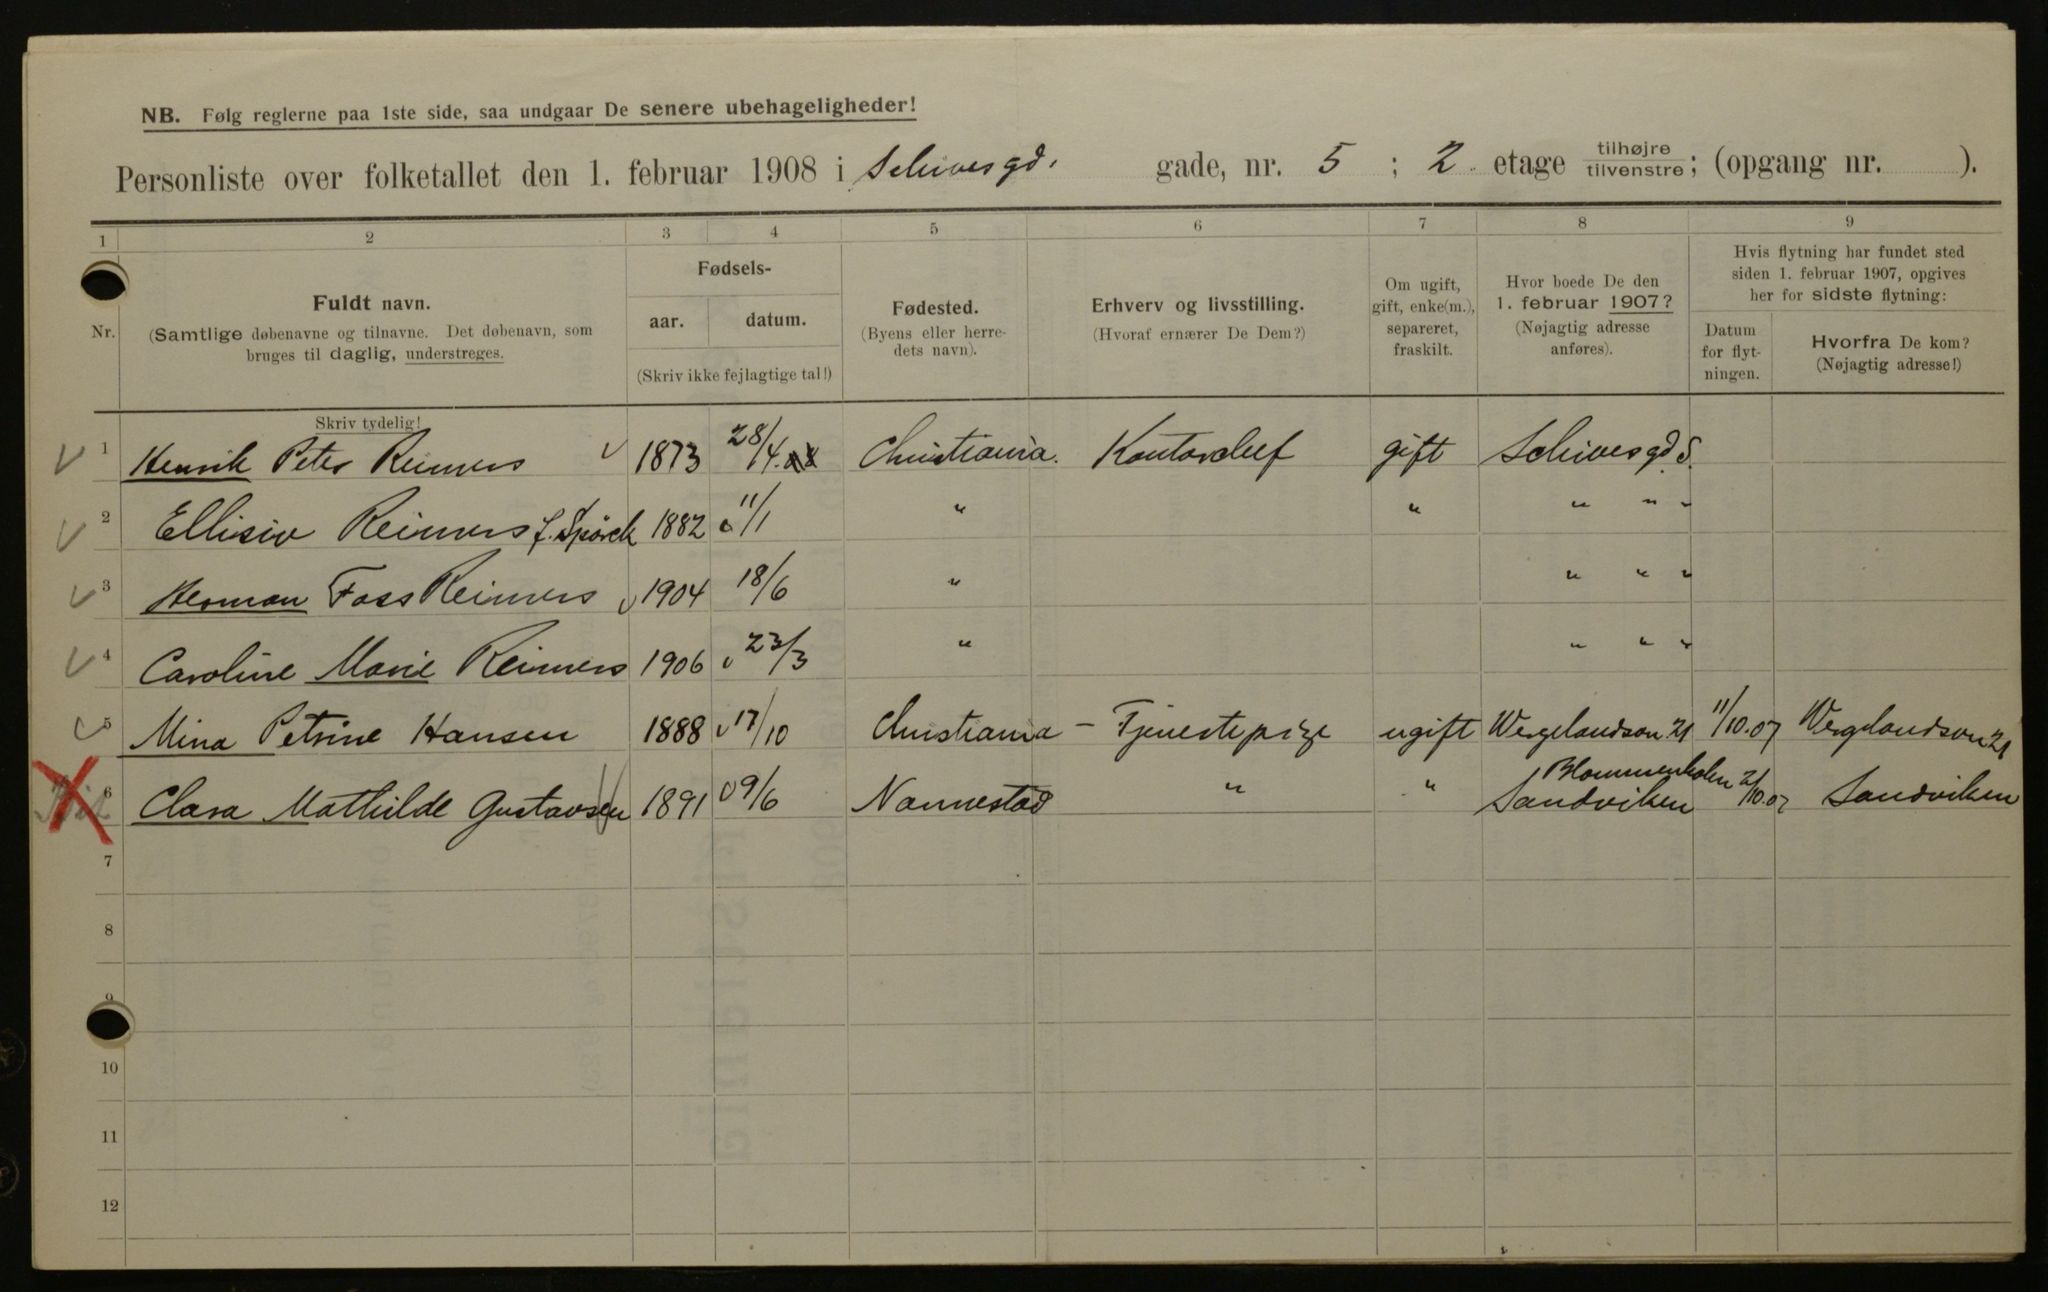 NB. Følg reglerne paa 1ste side, saa undgaar De senere ubehageligheder!
Personliste over folketallet den 1. februar 1908 i Schivesgd. gade, nr. 5 ; 2 etage tilhøjre tilvenstre; (opgang nr. ).
1 2 3 4 5 6 7 8 9
Nr.
Fuldt navn.
(Samtlige døbenavne og tilnavne. Det døbenavn, som
bruges til daglig, understreges.
Skriv tydelig!
Fødsels-
aar. datum.
(Skriv ikke fejlagtige tal!)
Fødested.
(Byens eller herre-
dets navn).
Erhverv og livsstilling.
(Hvoraf ernærer De Dem?)
Om ugift,
gift, enke(m.),
separeret,
fraskilt.
Hvor boede De den
1. februar 1907?
(Nøjagtig adresse
anføres).
Hvis flytning har fundet sted
siden 1. februar 1907, opgives
her for sidste flytning:
Datum
for flyt-
ningen.
Hvorfra De kom?
(Nøjagtig adresse!)
1 Henrik Peter Reimers 1873 28/4 Christiania. Kontorchef gift Schivesgd. 5.
2 Ellisiv Reimers f. Spörck 1882 11/1 " " " " "
3 Herman Foss Reimers 1904 18/6 " " " "
4 Caroline Marie Reimers 1906 23/3 " " " "
5 Mina Petrine Hansen 1888 17/10 Christiania - Tjenestepige ugift Wergelandsvn. 21 11/10.07 Wergelandsvn 21
6 Clara Mathilde Gustavsen 1891 9/6 Nannestad " " Blommenholm Sandviken 2/10.07 Sandviken
7
8
9
10
11
12